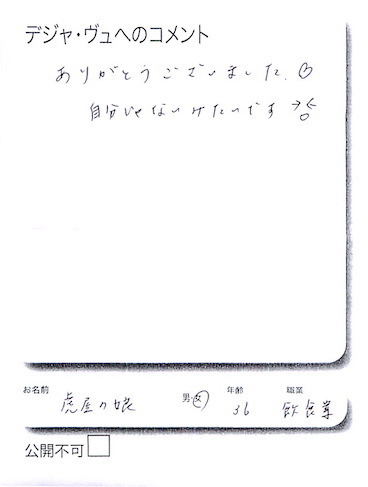 デジャ・ヴュへのコメント
ありがとうございました。♡
自分じゃないみたいです
お名前 虎屋の娘 男・女 年齢 36 職業 飲食業
公開不可